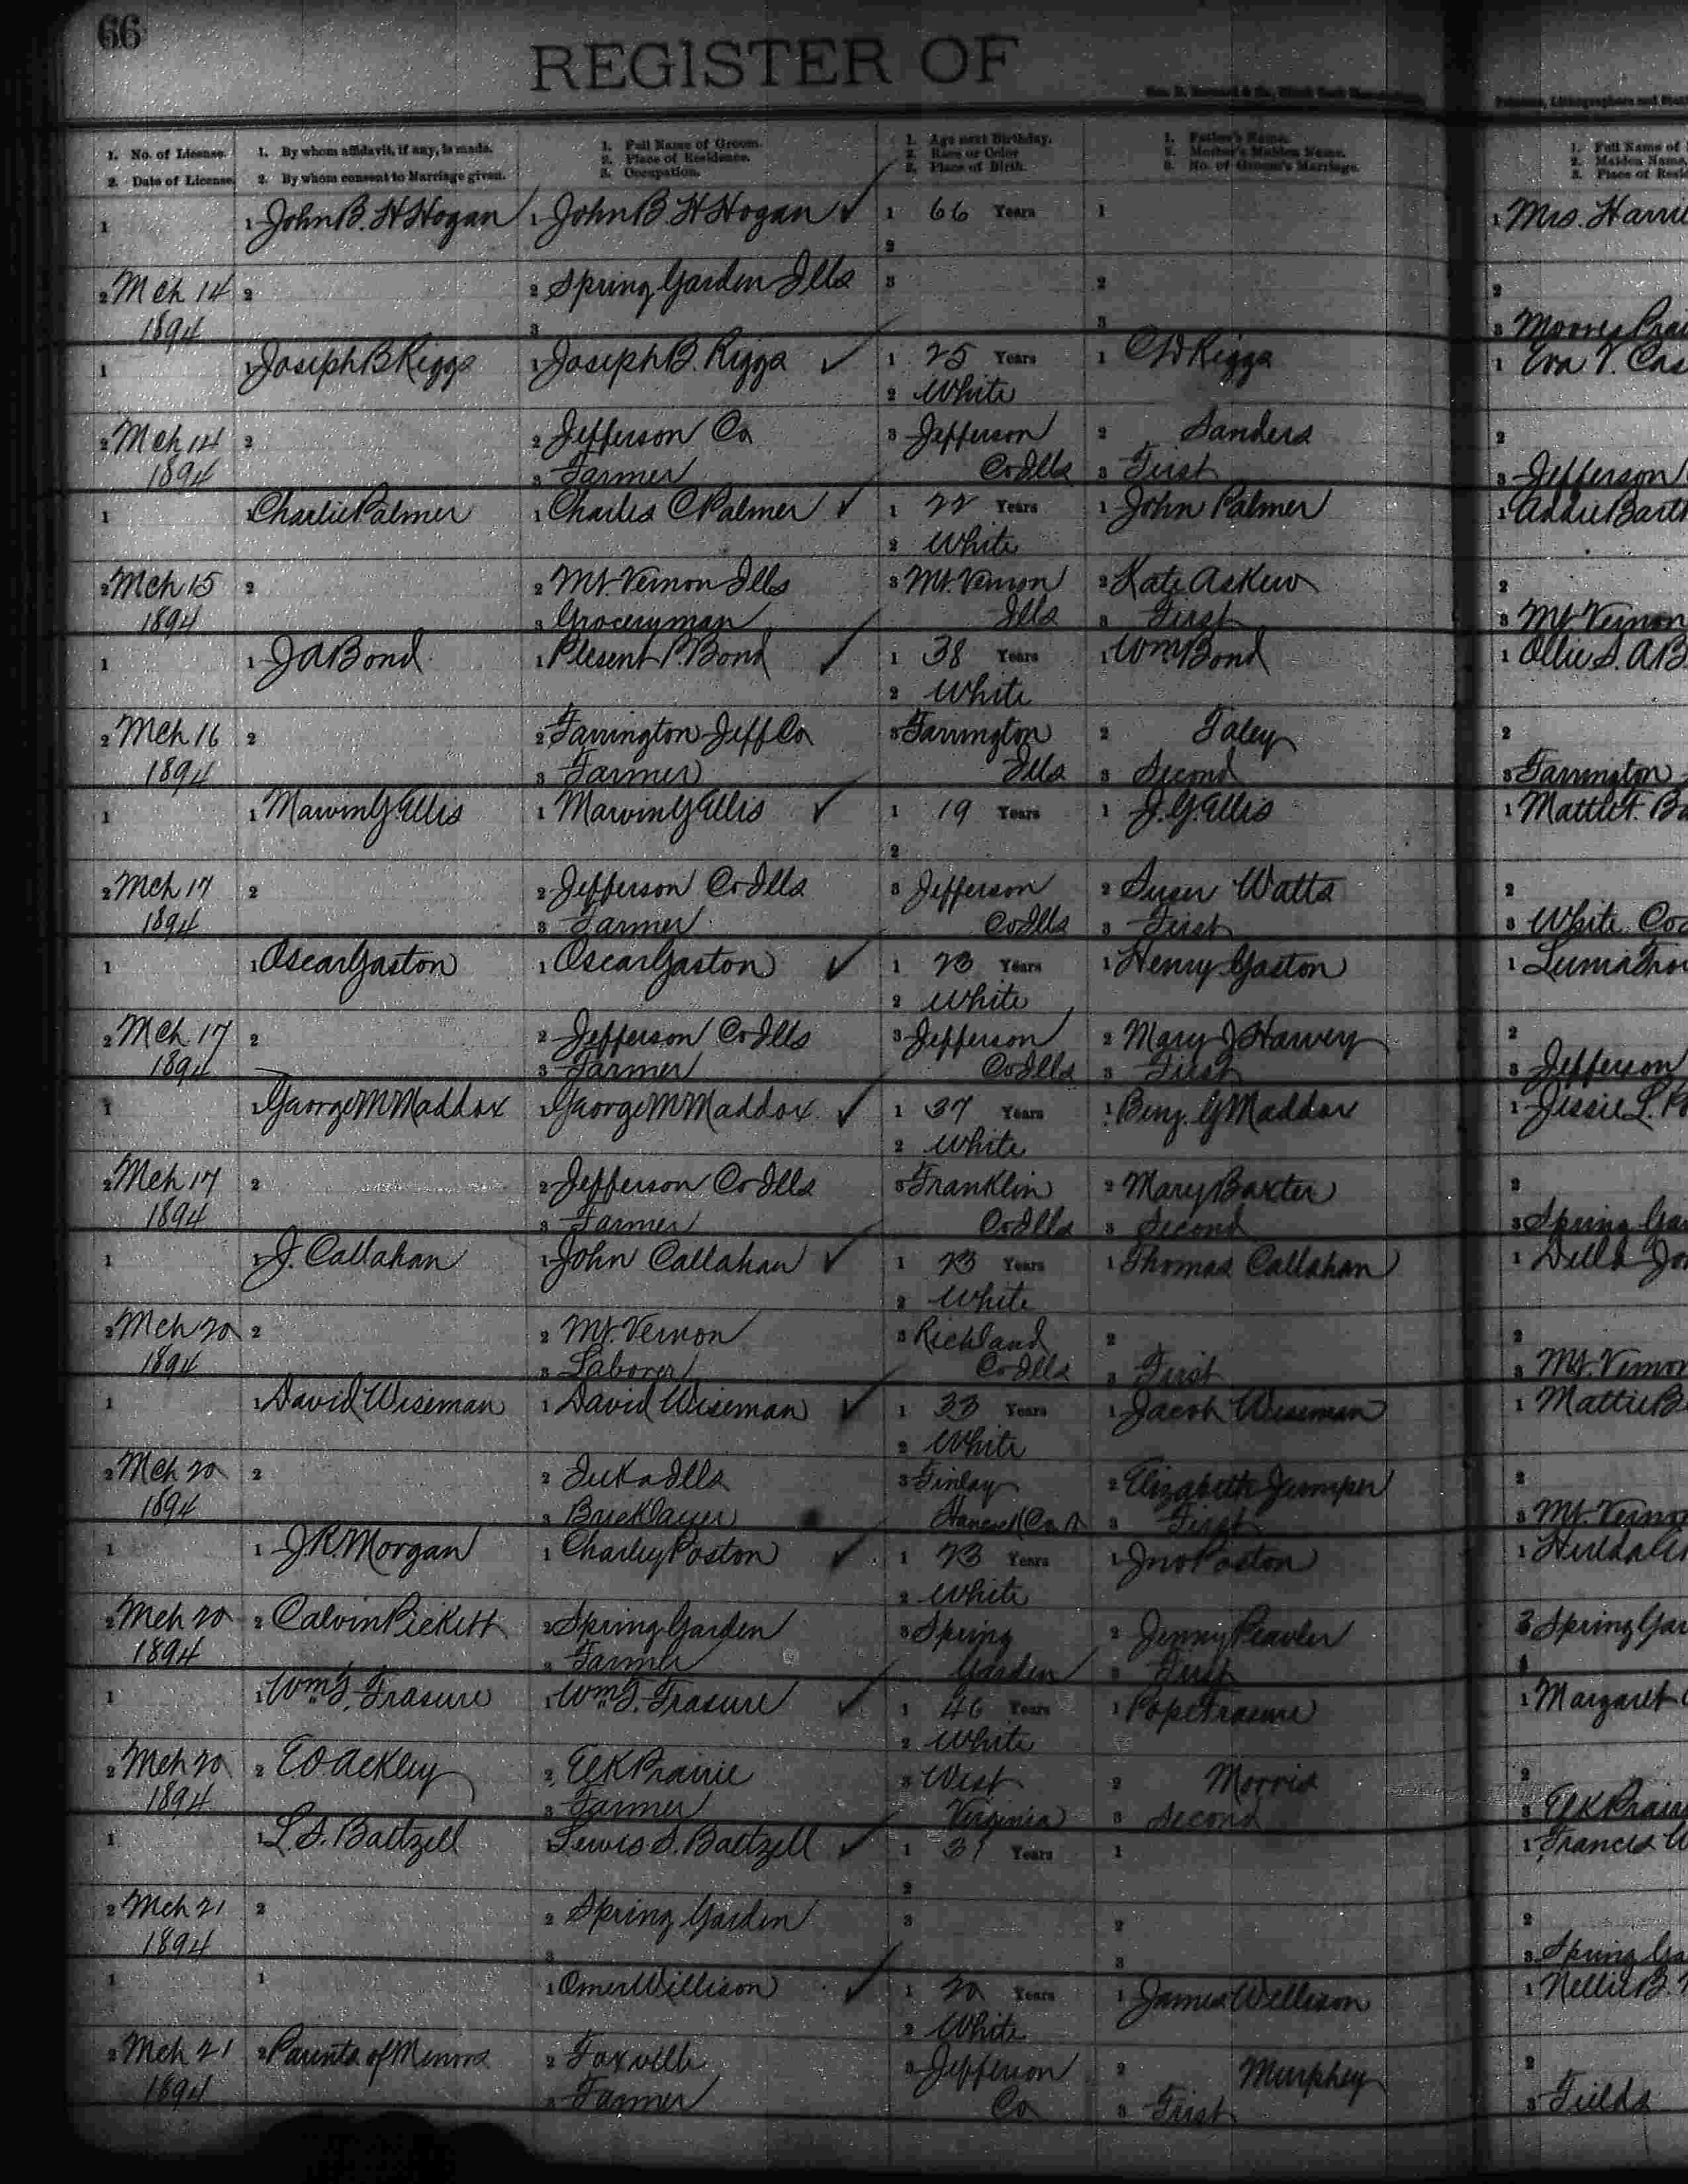 66
REGISTER OF
1. No. of License. 1. By whom affidavit, if any, is made. 1. Full Name of Groom. 1. Age next Birthday. 1. Father's Name. 1. Full Name of
2. Place of Residence. 2. Race or Color 2. Mother's Maiden Name. 2. Maiden Name,
2. Date of License. 2. By whom consent to Marriage given. 3. Occupation. 3. Place of Birth. 3. No. of Groom's Marriage. 3. Place of Resi
1 1 John B. H Hogan 1 John B. H Hogan ✓ 1 66 Years 1 1 Mrs. Harri
2
2 Mch 14 2 2 Spring Garden Ills 3 2 2
1894 3 3 3 Moores Prai
1 1 Joseph B Riggs 1 Joseph B. Riggs ✓ 1 25 Years 1 C W Riggs 1 Eva V. Cas
2 White
2 Mch 14 2 2 Jefferson Co 3 Jefferson 2 Sanders 2
1894 3 Farmer Co Ills 3 First 3 Jefferson
1 1 Charlie Palmer 1 Charles C Palmer ✓ 1 22 Years 1 John Palmer 1 Addie Bart
2 White
2 Mch 15 2 2 Mt. Vernon Ills 3 Mt. Vernon 2 Kate Askew 2
1894 3 Groceryman Ills 3 First 3 Mt Vernon
1 1 J A Bond 1 Plesent P. Bond ✓ 1 38 Years 1 Wm Bond 1 Ollie S. A B
2 White
2 Mch 16 2 2 Farrington Jeff Co 3 Farrington 2 Faley 2
1894 3 Farmer Ills 3 Second 3 Farrington
1 1 Marvin G. Ellis 1 Marvin G Ellis ✓ 1 19 Years 1 J. G. Ellis 1 Mattie F. Ba
2
2 Mch 17 2 2 Jefferson Co Ills 3 Jefferson 2 Susen Watts 2
1894 3 Farmer Co Ills 3 First 3 White Co
1 1 Oscar Gaston 1 Oscar Gaston ✓ 1 23 Years 1 Henry Gaston 1
2 White
2 Mch 17 2 2 Jefferson Co Ills 3 Jefferson 2 Mary J Harvey 2
1894 3 Farmer Co Ills 3 First 3 Jefferson
1 1 George M Maddox 1 George M Maddox ✓ 1 37 Years 1 Benj. G Maddox 1 Jessie L.
2 White
2 Mch 17 2 2 Jefferson Co Ills 3 Franklin 2 Mary Baxter 2
1894 3 Farmer Co Ills 3 Second 3 Spring Gar
1 1 J. Callahan 1 John Callahan ✓ 1 23 Years 1 Thomas Callahan 1 Della Jo
2 White
2 Mch 20 2 2 Mt. Vernon 3 Richland 2 2
1894 3 Laborer Co Ills 3 First 3 Mt. Vernon
1 1 David Wiseman 1 David Wiseman ✓ 1 33 Years 1 Jacob Wiseman 1 Mattie B
2 White
2 Mch 20 2 2 Iuka Ills 3 Finlay 2 Elizabeth Jumper 2
1894 3 Bricklayer Hancock Co. 3 First 3 Mt. Vernon
1 1 J R. Morgan 1 Charley Poston ✓ 1 23 Years 1 Jno Poston 1 Hulda
2 White
2 Mch 20 2 Calvin Pickett 2 Spring Garden 3 Spring 2 Jenny Peavler 3 Spring Gar
1894 3 Farmer Garden 3 First
1 1 Wm. T. Frasure 1 Wm. T. Frasure ✓ 1 46 Years 1 Pope Frasure 1 Margaret
2 White
2 Mch 20 2 E. O. Ackley 2 Elk Prairie 3 West 2 Morris 2
1894 3 Farmer Virginia 3 Second 3 Elk Prair
1 1 L. S. Baltzell 1 Lewis S. Baltzell ✓ 1 31 Years 1 1 Francis
2
2 Mch 21 2 2 Spring Garden 3 2 2
1894 3 3 3 Spring Ga
1 1 1 Omer Willison ✓ 1 20 Years 1 James Willison 1 Nellie B.
2 White
2 Mch 21 2 Parents of Minors 2 Foxville 3 Jefferson 2 Murphey 2
1894 3 Farmer Co 3 First 3 Fields